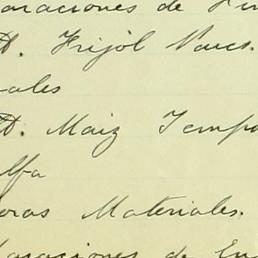 araciones de Fin
d. Frijol Vars.
ales
d. Maiz Tempo
lfa
oras Materiales.
laraciones de En